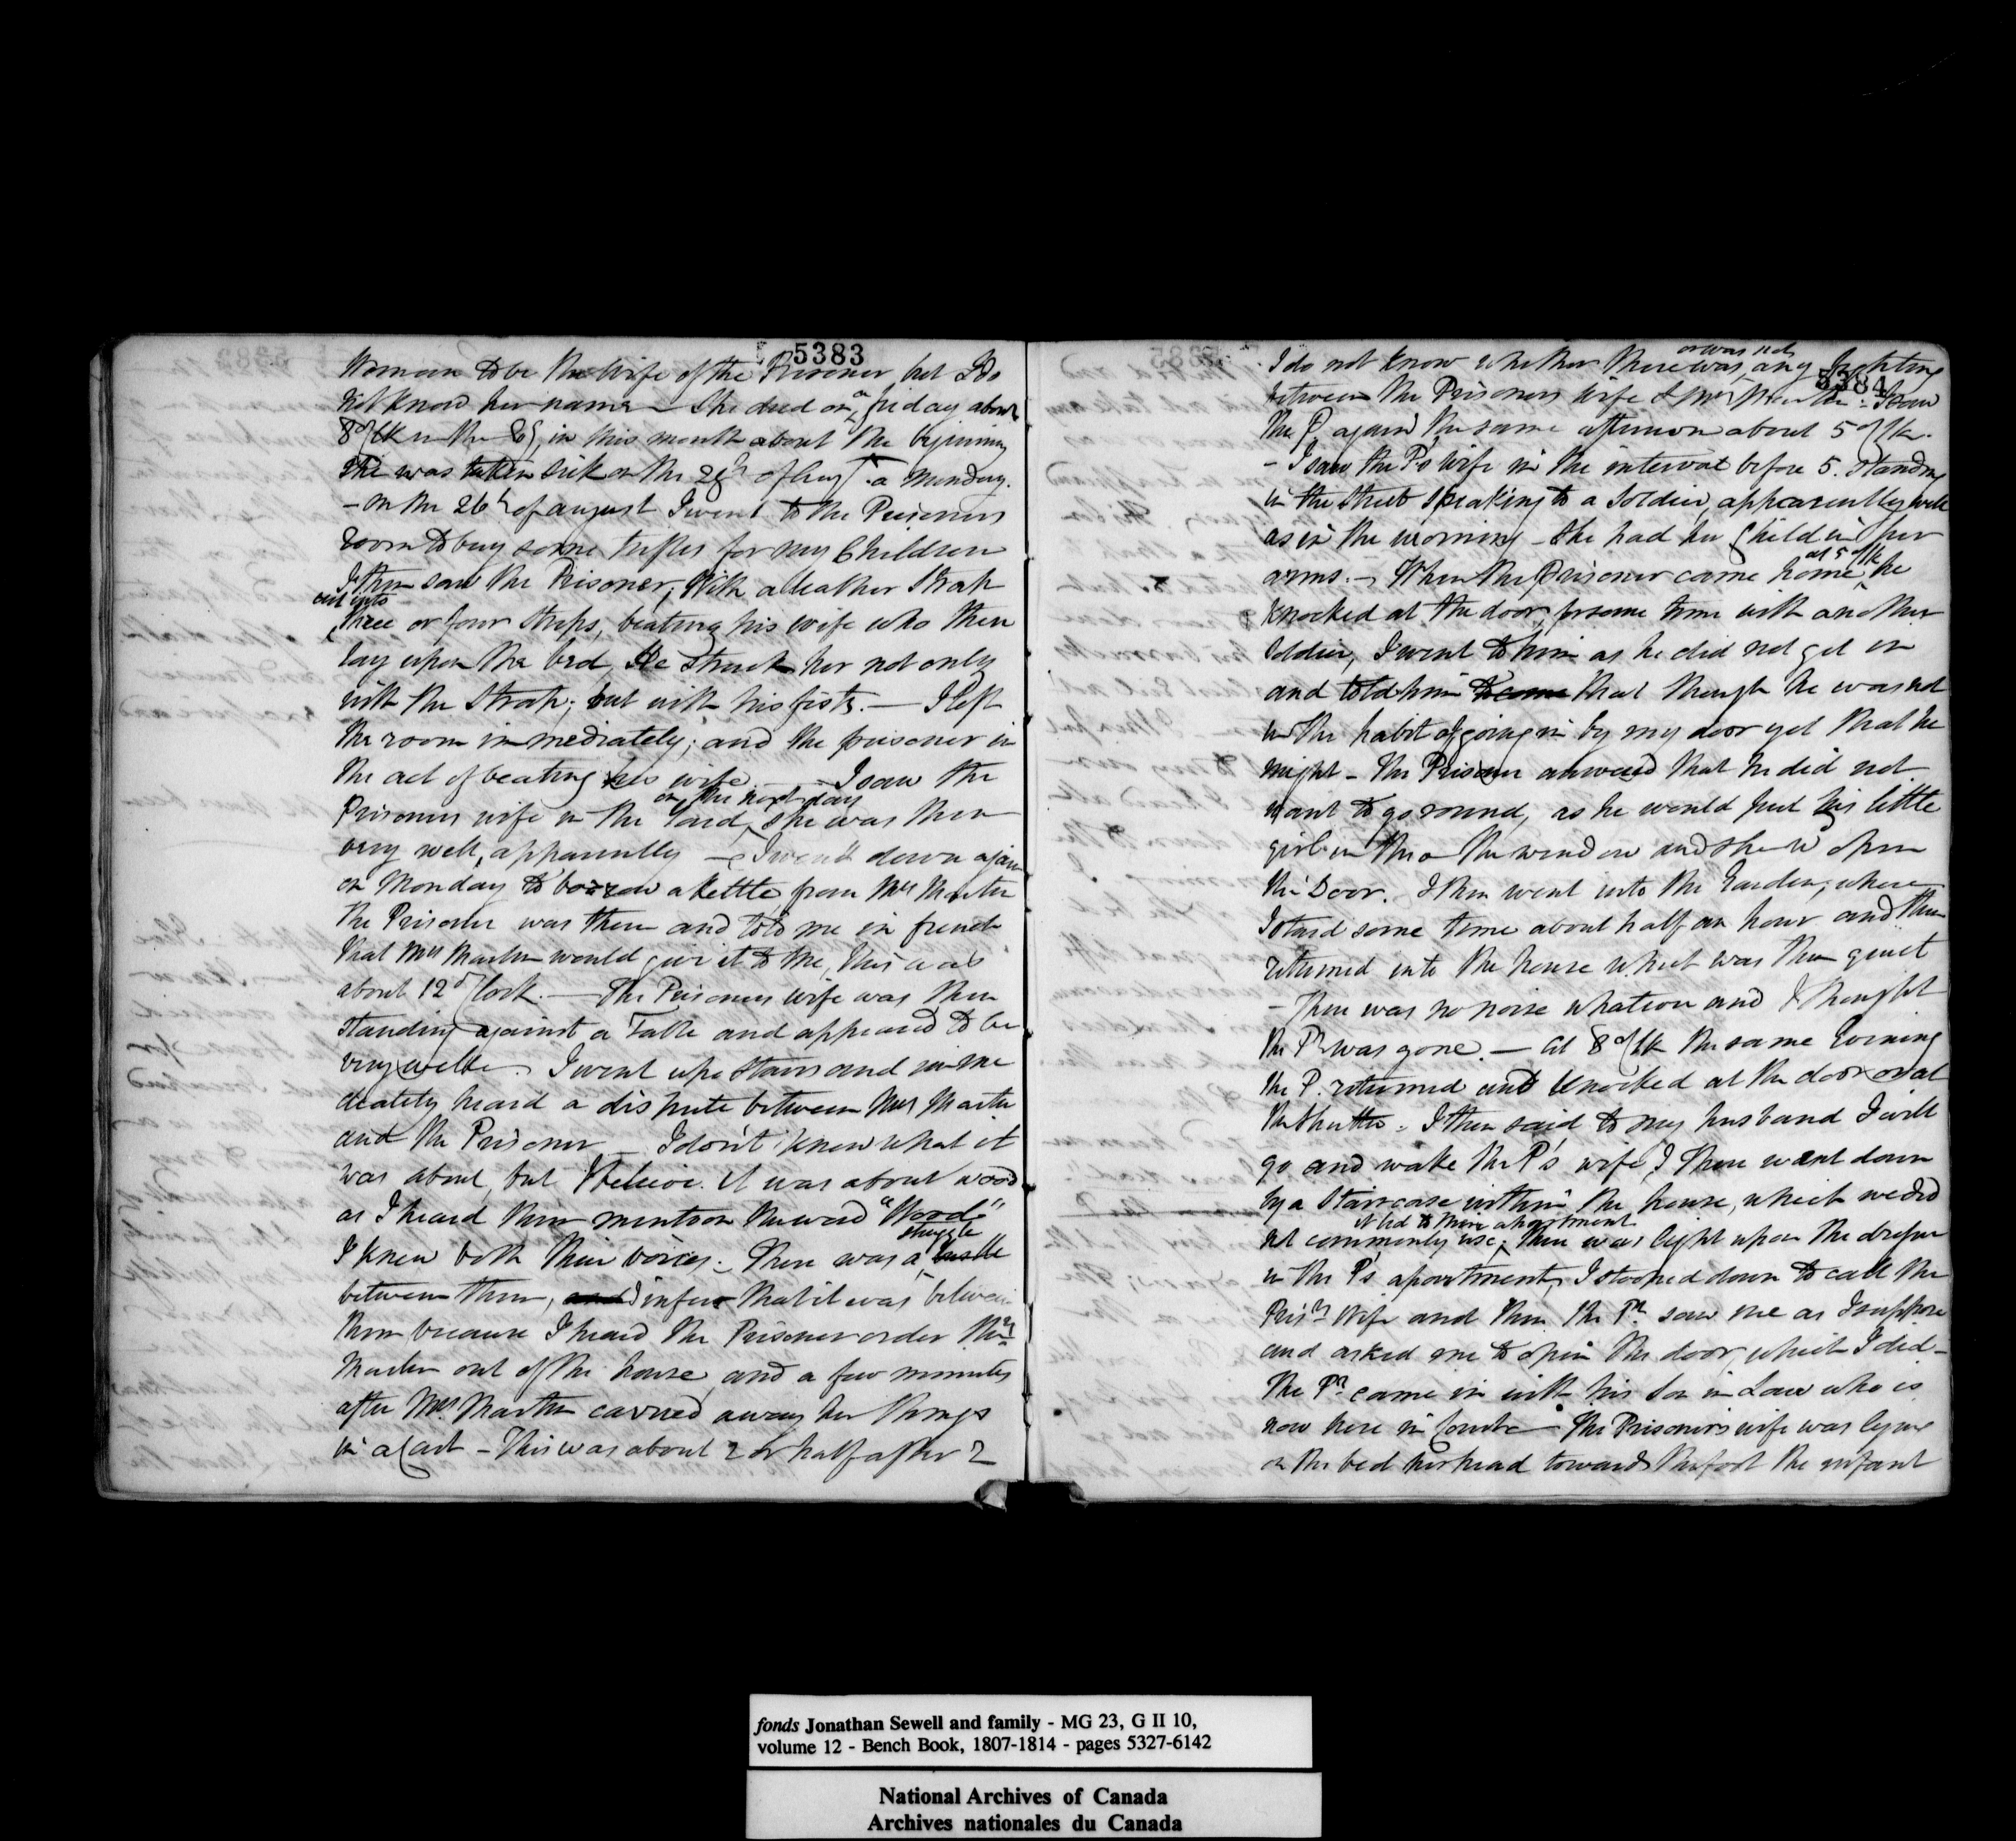 5383
Woman to be the Wife of the Prisoner, but I do
not know her name – She died on a friday about
8 o/Clk in the in this month about the beginning
She was taken sick on the 28th of Augt a Monday.
– On the 26th of august I went to the Prisoners
room to buy some trifles for my Children
I then saw the Prisoner, with a leather Strap
cut into
three or four straps, beating his wife who then
lay upon the bed, He struck her not only
with the Strap; but with his fists. — I left
the room immediately; and the prisoner in
the act of beating his wife. — I saw the
on the next day
Prisoners wife in the Yard, she was then
very well, apparently — I went down again
on Monday to borrow a kettle from Mrs Martin
the Prisoner was there and told me in french
that Mrs Martin would give it to me, this was
about 12 o/Clock. — The Prisoners wife was then
standing against a Table and appeared to be
very well. I went up stairs and imme
diately heard a dispute between Mrs Martin
and the Prisoner – I don't know what it
was about, but I believe it was about wood
as I heard them mention the word "Wood"
struggle
I knew both their voices. There was a bustle
between them, and I infer that it was between
them because I heard the Prisoner order Mrs
Martin out of the house, and a few minutes
after Mrs Martin carried away her things
in a Cart – This was about 2 or half after 2
5384
or was not
I do not know whether there was any fighting
between the Prisoners wife & Mrs Martin – I saw
the P. again the same afternoon about 5 o/Clk.
– I saw the P's wife in the interval before 5. standing
in the street speaking to a Soldier, apparently well
as in the morning – She had her Child in her
at 5 o/Clk
arms. – When the Prisoner came home, he
knocked at the door for some time with another
Soldier, I went to him as he did not get in
and told him to come that though he was not
in the habit of going in by my door yet that he
might – The Prisoner answered that he did not
want to go round, as he would put his little
girl in thro the window and she'd open
the Door. I then went into the Garden, where
I staid some time about half an hour and then
returned into the house which was then quiet
– There was no noise whatever and I thought
the Pr was gone. — at 8 o/Clk the same Evening
the P. returned and knocked at the door or at
the shutter. I then said to my husband I will
go and wake the P's wife, I then went down
by a Staircase within the house, which we did
it led to their apartment
not commonly use; there was light upon the
in the P's apartment, I stooped down to call the
Prisrs Wife and then the Pr saw me as I suppose
and asked me to open the door, which I did –
The Pr came in with his Son in Law who is
now here in Court – The Prisoners wife was lying
on the bed her head towards the foot the infant
fonds Jonathan Sewell and family - MG 23, G II 10,
volume 12 - Bench Book, 1807-1814 - pages 5327-6142
National Archives of Canada
Archives nationales du Canada